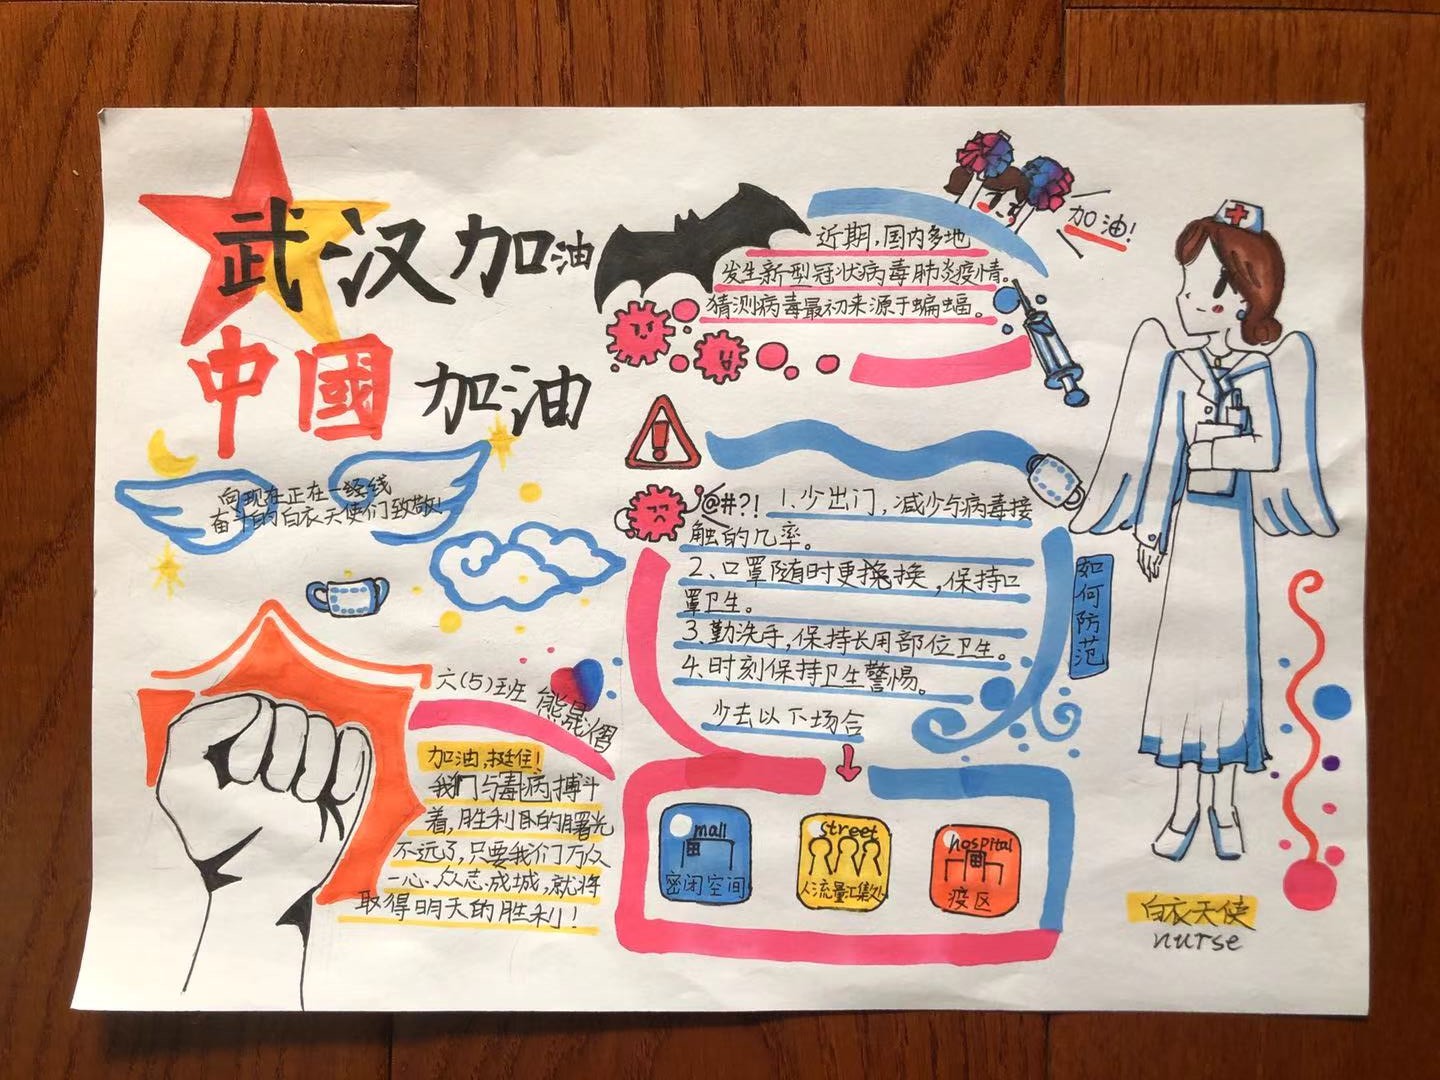 武汉加油
中國加油
向现在正在一经线
奋斗的白衣天使们致敬!
近期,国内多地
发生新型冠状病毒肺炎疫情。
猜测病毒最初来源于蝙蝠。
加油!
@#?! 1.少出门,减少与病毒接
触的几率。
2、口罩随时更换,保持口
罩卫生。
3、勤洗手,保持长用部位卫生。
4、时刻保持卫生警惕。
少去以下场合
如何防范
mall
密闭空间
street
人流量汇集处
hospital
疫区
六(5)班
加油,挺住!
我们与毒病搏斗
着,胜利的曙光
不远了,只要我们万众
一心、众志成城,就将
取得明天的胜利!
白衣天使
nurse